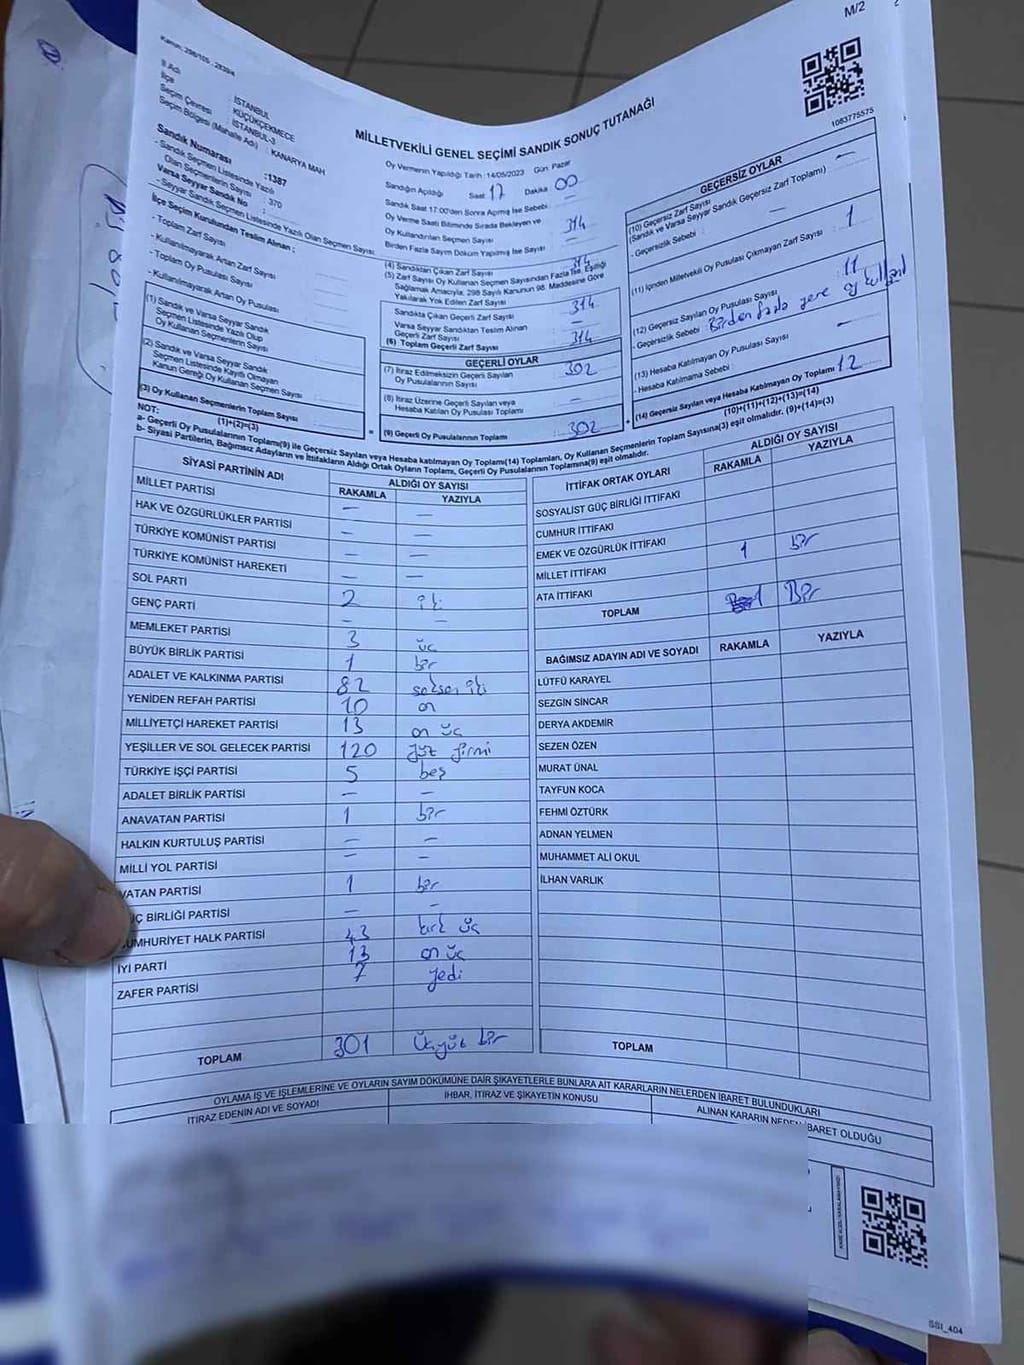 M/2
Kanun: 298/105 - 2839/4
İl Adı : İSTANBUL
İlçe : KÜÇÜKÇEKMECE
Seçim Çevresi : İSTANBUL-3
Seçim Bölgesi (Mahalle Adı) : KANARYA MAH
MİLLETVEKİLİ GENEL SEÇİMİ SANDIK SONUÇ TUTANAĞI
1083775575
Sandık Numarası :1387
- Sandık Seçmen Listesinde Yazılı
Olan Seçmenlerin Sayısı : 370
Varsa Seyyar Sandık No :
- Seyyar Sandık Seçmen Listesinde Yazılı Olan Seçmen Sayısı:
İlçe Seçim Kurulundan Teslim Alınan :
- Toplam Zarf Sayısı
- Kullanılmayarak Artan Zarf Sayısı
- Toplam Oy Pusulası Sayısı
- Kullanılmayarak Artan Oy Pusulası
(1) Sandık ve Varsa Seyyar Sandık
Seçmen Listesinde Yazılı Olup
Oy Kullanan Seçmenlerin Sayısı
(2) Sandık ve Varsa Seyyar Sandık
Seçmen Listesinde Kayıtlı Olmayan
Kanun Gereği Oy Kullanan Seçmen Sayısı
(3) Oy Kullanan Seçmenlerin Toplam Sayısı
(1)+(2)=(3)
Oy Vermenin Yapıldığı Tarih : 14/05/2023 Gün: Pazar
Sandığın Açıldığı Saat 17 Dakika 00
Sandık Saat 17.00'den Sonra Açılmış İse Sebebi: —
Oy Verme Saati Bitiminde Sırada Bekleyen ve
Oy Kullandırılan Seçmen Sayısı 314
Birden Fazla Sayım Döküm Yapılmış İse Sayısı —
(4) Sandıktan Çıkan Zarf Sayısı 314
(5) Zarf Sayısı Oy Kullanan Seçmen Sayısından Fazla İse, Eşitliği
Sağlamak Amacıyla, 298 Sayılı Kanunun 98. Maddesine Göre
Yakılarak Yok Edilen Zarf Sayısı
Sandıkta Çıkan Geçerli Zarf Sayısı : 314
Varsa Seyyar Sandıktan Teslim Alınan
Geçerli Zarf Sayısı : —
(6) Toplam Geçerli Zarf Sayısı : 314
GEÇERLİ OYLAR
(7) İtiraz Edilmeksizin Geçerli Sayılan
Oy Pusulalarının Sayısı : 302
(8) İtiraz Üzerine Geçerli Sayılan veya
Hesaba Katılan Oy Pusulası Toplamı : —
(9) Geçerli Oy Pusulalarının Toplamı : 302
GEÇERSİZ OYLAR
(10) Geçersiz Zarf Sayısı —
(Sandık ve Varsa Seyyar Sandık Geçersiz Zarf Toplamı)
- Geçersizlik Sebebi : —
(11) İçinden Milletvekili Oy Pusulası Çıkmayan Zarf Sayısı : 1
(12) Geçersiz Sayılan Oy Pusulası Sayısı : 11
- Geçersizlik Sebebi : Birden fazla yere oy
(13) Hesaba Katılmayan Oy Pusulası Sayısı : —
- Hesaba Katılmama Sebebi :
(14) Geçersiz Sayılan veya Hesaba Katılmayan Oy Toplamı : 12
(10)+(11)+(12)+(13)=(14)
NOT:
a- Geçerli Oy Pusulalarının Toplamı(9) ile Geçersiz Sayılan veya Hesaba katılmayan Oy Toplamı(14) Toplamları, Oy Kullanan Seçmenlerin Toplam Sayısına(3) eşit olmalıdır. (9)+(14)=(3)
b- Siyasi Partilerin, Bağımsız Adayların ve İttifakların Aldığı Ortak Oyların Toplamı, Geçerli Oy Pusulalarının Toplamına(9) eşit olmalıdır.
SİYASİ PARTİNİN ADI ALDIĞI OY SAYISI
RAKAMLA YAZIYLA
MİLLET PARTİSİ — —
HAK VE ÖZGÜRLÜKLER PARTİSİ — —
TÜRKİYE KOMÜNİST PARTİSİ — —
TÜRKİYE KOMÜNİST HAREKETİ — —
SOL PARTİ 2 iki
GENÇ PARTİ — —
MEMLEKET PARTİSİ 3 üç
BÜYÜK BİRLİK PARTİSİ 1 bir
ADALET VE KALKINMA PARTİSİ 82 seksen iki
YENİDEN REFAH PARTİSİ 10 on
MİLLİYETÇİ HAREKET PARTİSİ 13 on üç
YEŞİLLER VE SOL GELECEK PARTİSİ 120 yüz yirmi
TÜRKİYE İŞÇİ PARTİSİ 5 beş
ADALET BİRLİK PARTİSİ — —
ANAVATAN PARTİSİ 1 bir
HALKIN KURTULUŞ PARTİSİ — —
MİLLİ YOL PARTİSİ — —
VATAN PARTİSİ 1 bir
ÜÇ BİRLİĞİ PARTİSİ — —
CUMHURİYET HALK PARTİSİ 43 kırk üç
İYİ PARTİ 13 on üç
ZAFER PARTİSİ 7 yedi
TOPLAM 301 üçyüz bir
İTTİFAK ORTAK OYLARI ALDIĞI OY SAYISI
RAKAMLA YAZIYLA
SOSYALİST GÜÇ BİRLİĞİ İTTİFAKI
CUMHUR İTTİFAKI
EMEK VE ÖZGÜRLÜK İTTİFAKI 1 bir
MİLLET İTTİFAKI
ATA İTTİFAKI
TOPLAM 1 Bir
BAĞIMSIZ ADAYIN ADI VE SOYADI RAKAMLA YAZIYLA
LÜTFÜ KARAYEL
SEZGİN SİNCAR
DERYA AKDEMİR
SEZEN ÖZEN
MURAT ÜNAL
TAYFUN KOCA
FEHMİ ÖZTÜRK
ADNAN YELMEN
MUHAMMET ALİ OKUL
İLHAN VARLIK
TOPLAM
OYLAMA İŞ VE İŞLEMLERİNE VE OYLARIN SAYIM DÖKÜMÜNE DAİR ŞİKAYETLERLE BUNLARA AİT KARARLARIN NELERDEN İBARET BULUNDUKLARI
İTİRAZ EDENİN ADI VE SOYADI İHBAR, İTİRAZ VE ŞİKAYETİN KONUSU ALINAN KARARIN NEDEN İBARET OLDUĞU
SSI_404